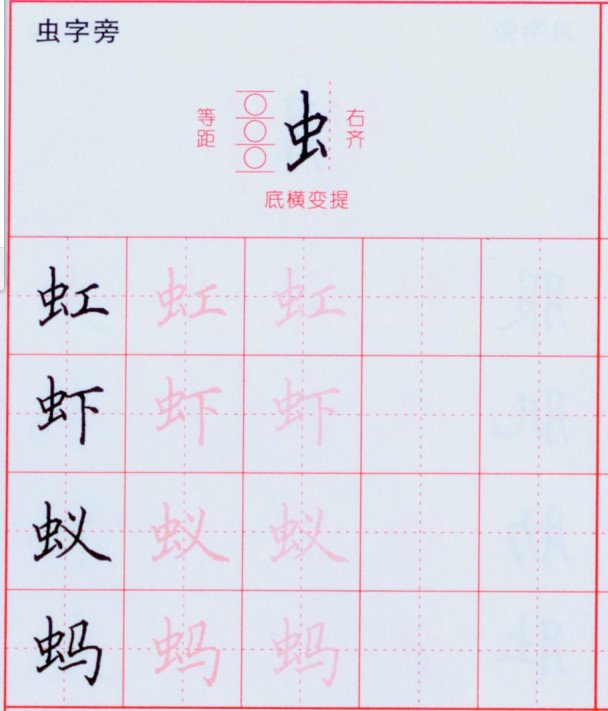 虫字旁
等距
虫
右齐
底横变提
虹 虹 虹
虾 虾 虾
蚁 蚁 蚁
蚂 蚂 蚂